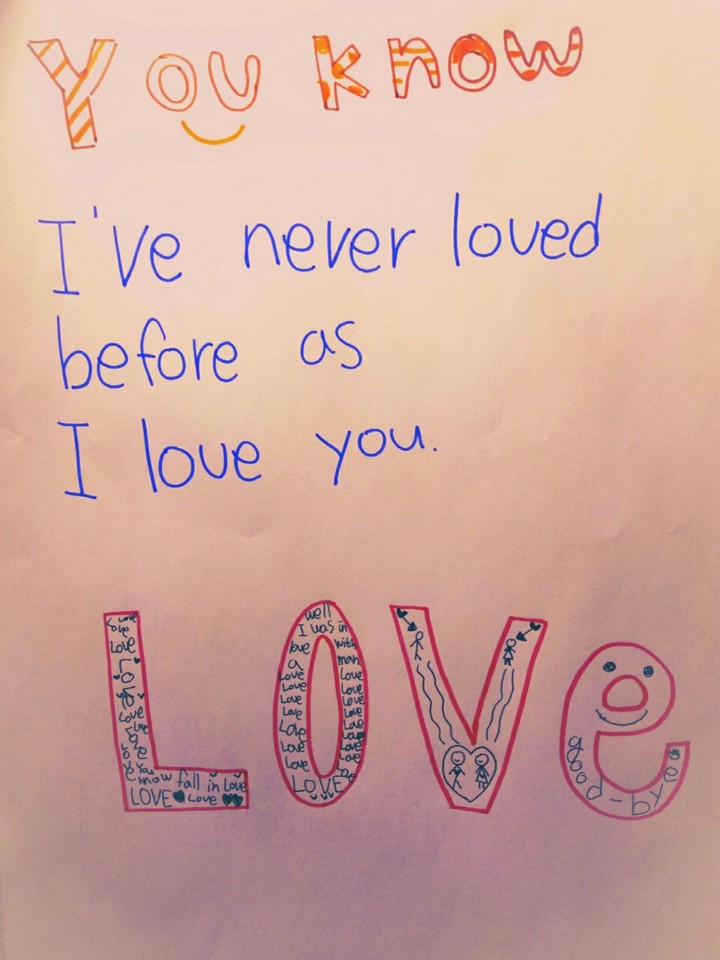 You know
I've never loved
before as
I love you.
LOVe
Love
LOVE
Love
Love
know fall in love
LOVE Love
well
I was in
love with
a man
Love Love
Love Love
Love Love
Love Love
Love Love
Love Love
Love Love
LOVE
good-bye